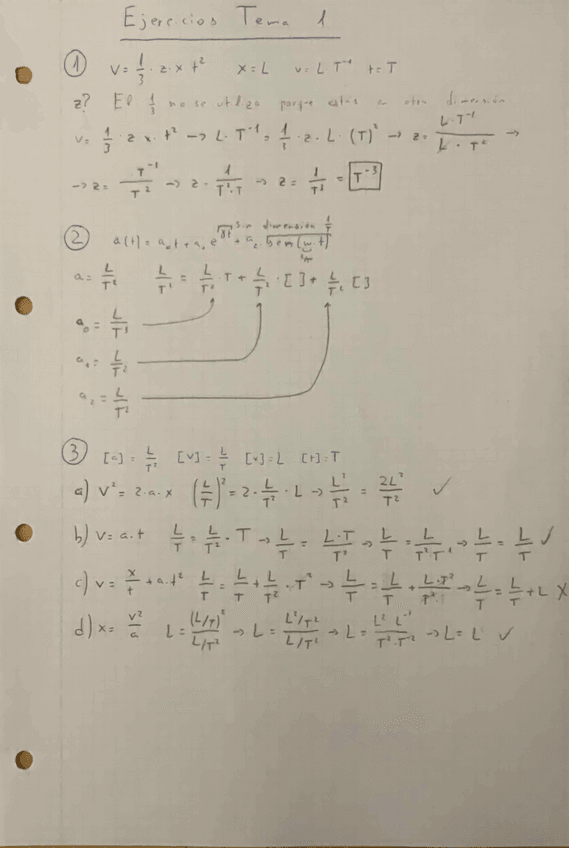 Ejercicios Tema 1
① V = 1/3 · z · x t² x = L v = L · T⁻¹ t = T
z? El 1/3 no se utiliza porque estás en otra dimensión
v = 1/3 · z x · t² → L · T⁻¹ = 1/3 · z · L · (T)² → z = L · T⁻¹ / L · T² →
→ z = T⁻¹/T² → z = 1/T²·T → z = 1/T³ = T⁻³
② a(t) = a₀t + a₁ e^√8t + a₂ · sen(w·t) Sin dimensión 1/T
a = L/T² L/T² = L/T³ · T + L/T² · [ ] + L/T² [ ]
a₀ = L/T³
a₁ = L/T²
a₂ = L/T²
③ [a] = L/T² [v] = L/T [x] = L [t] = T
a) V² = 2·a·x (L/T)² = 2 · L/T² · L → L²/T² = 2L²/T² ✓
b) V = a·t L/T = L/T² · T → L/T = L·T/T² → L/T = L/T²T⁻¹ → L/T = L/T ✓
c) v = x/t + a·t² L/T = L/T + L/T² · T² → L/T = L/T + L·T²/T² → L/T = L/T + L X
d) x = v²/a L = (L/T)²/L/T² → L = L²/T²/L/T² → L = L² L⁻¹/T²·T⁻² → L = L ✓